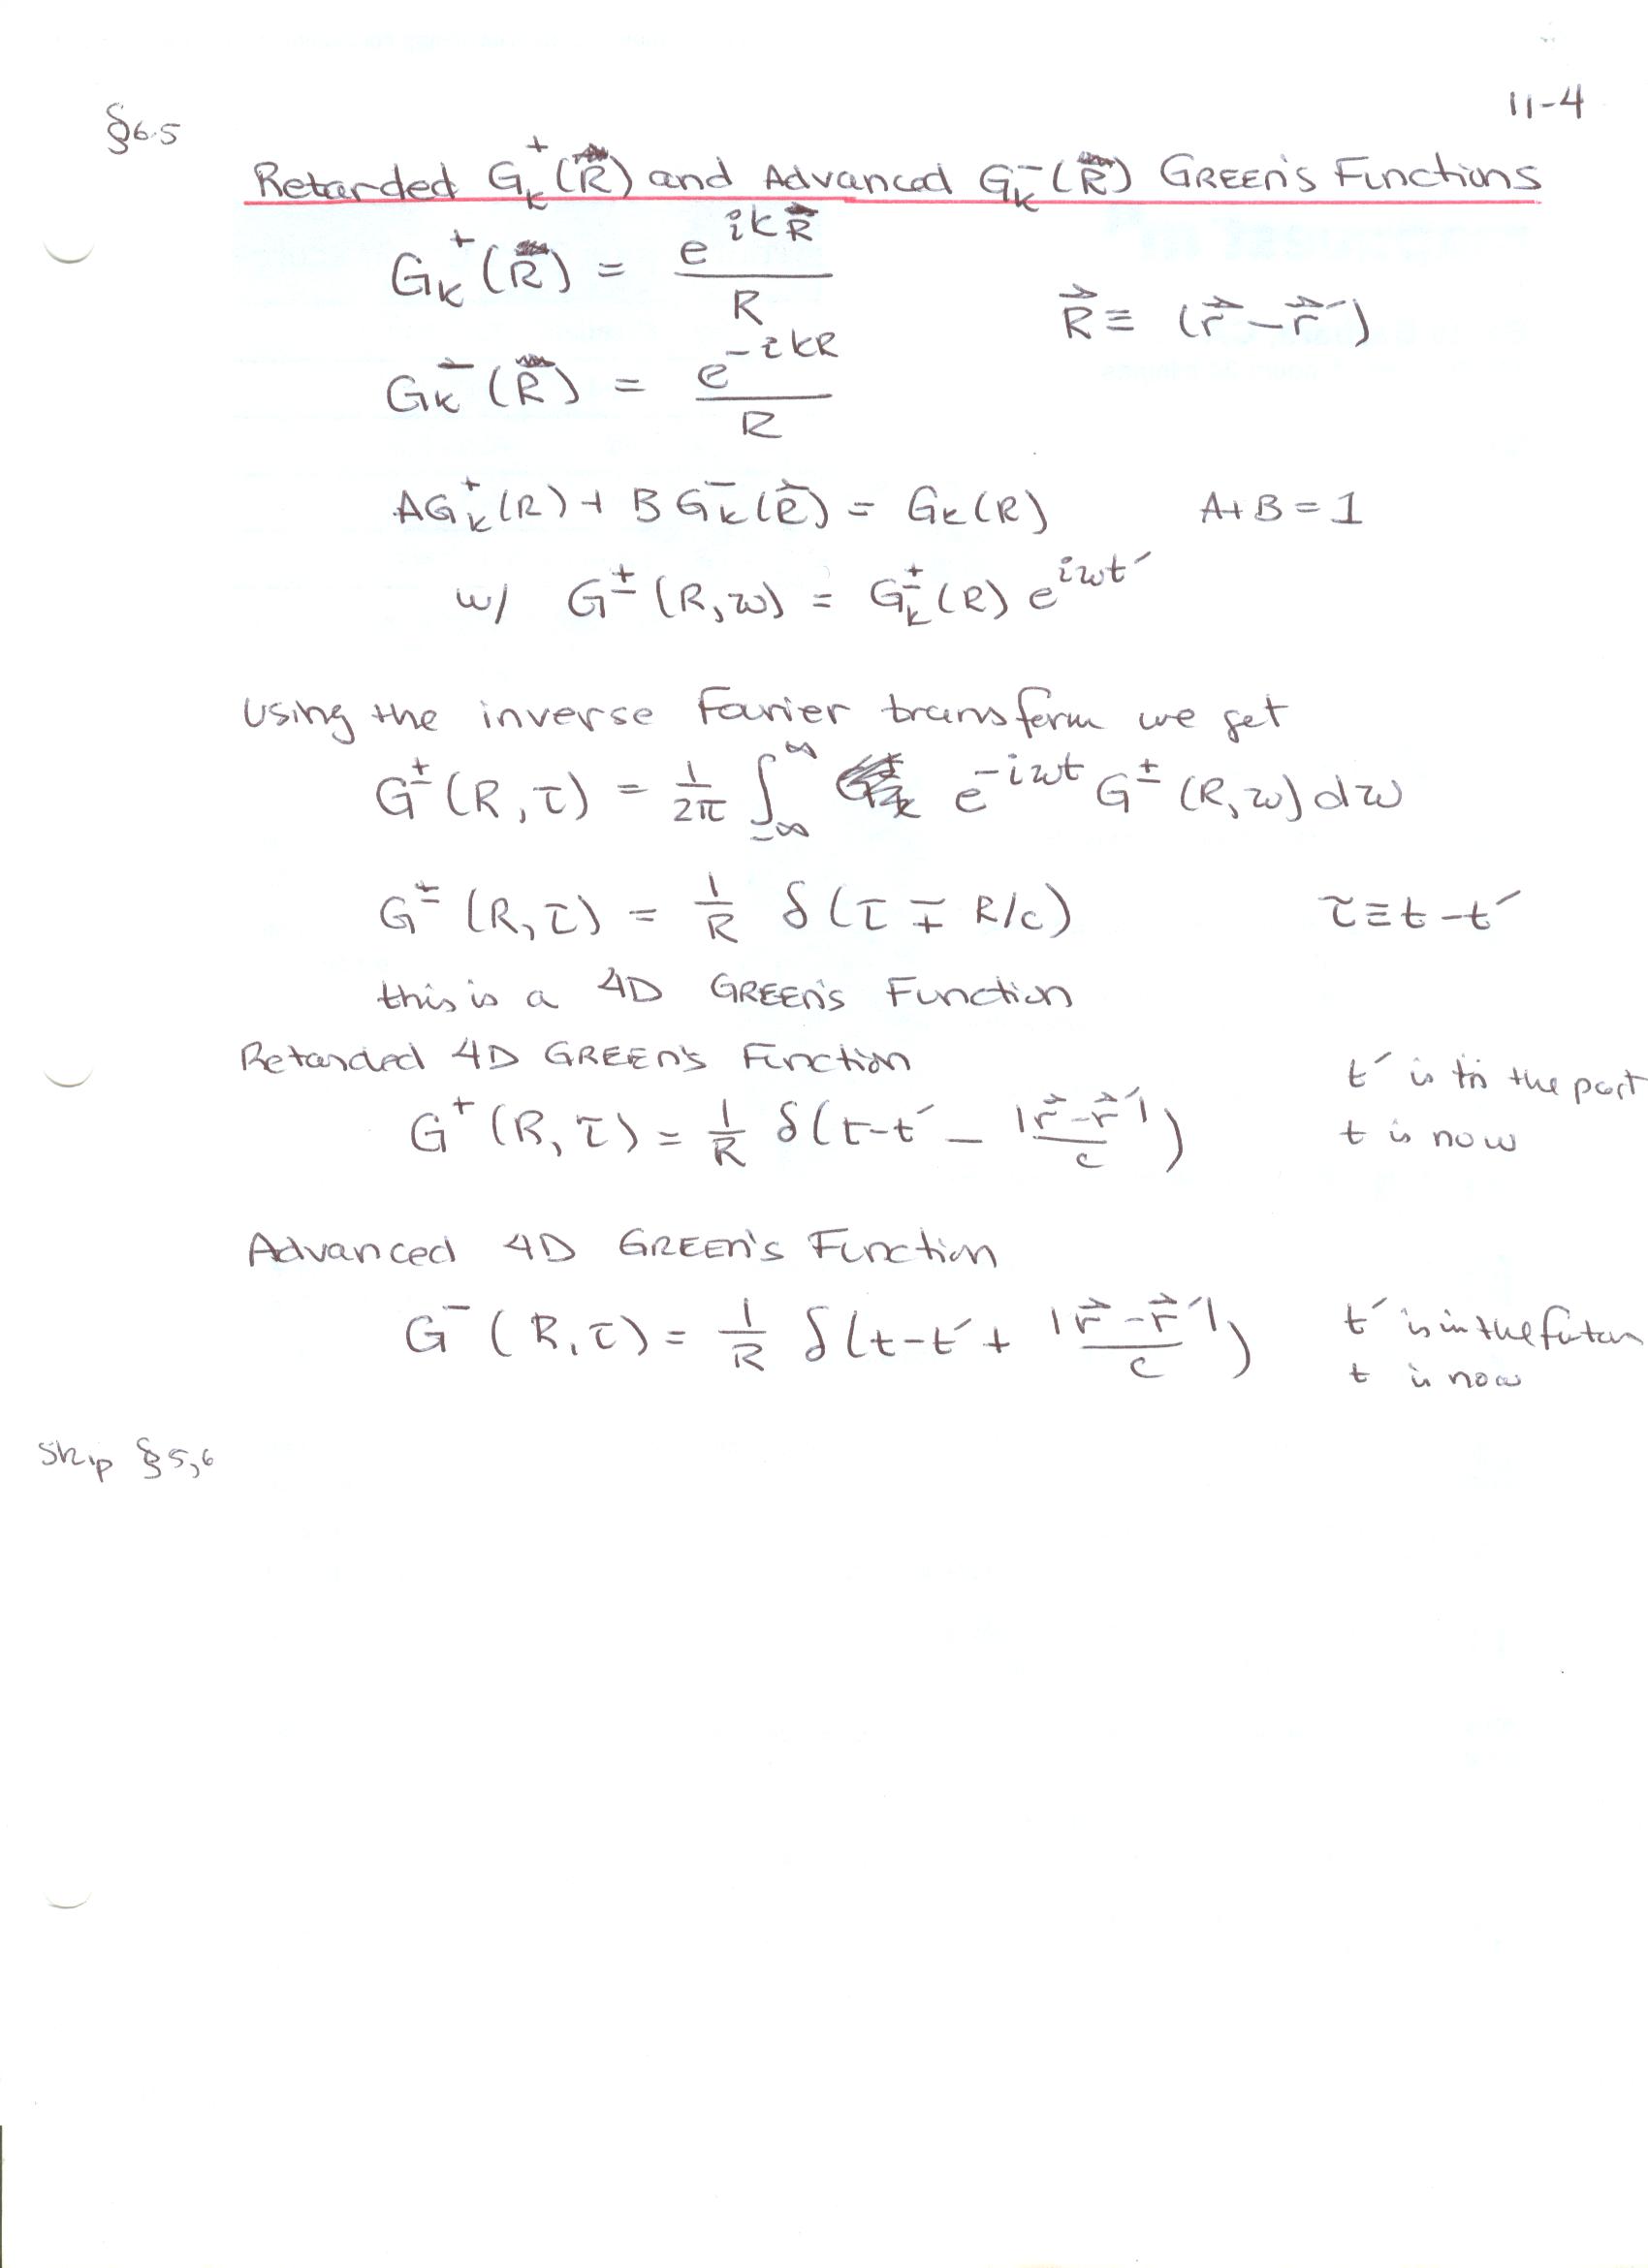 11-4
§6.5
Retarded G_k^+(R) and Advanced G_k^-(R) GREEN'S Functions
G_k^+(R) = e^{ikR} / R
R⃗ ≡ (r⃗ - r⃗′)
G_k^-(R) = e^{-ikR} / R
AG_k^+(R) + BG_k^-(R⃗) = G_k(R)    A+B = 1
w/ G^±(R,ω) = G_k^±(R) e^{iωt′}
Using the inverse Fourier transform we get
G^±(R,τ) = 1/2π ∫_{-∞}^{∞} e^{-iωt} G^±(R,ω) dω
G^±(R,τ) = 1/R δ(τ ∓ R/c)    τ ≡ t - t′
this is a 4D GREEN'S Function
Retarded 4D GREEN'S Function
t′ is in the past
G^+(R,τ) = 1/R δ(t-t′ - |r⃗-r⃗′|/c)
t is now
Advanced 4D GREEN'S Function
G^-(R,τ) = 1/R δ(t-t′ + |r⃗-r⃗′|/c)
t′ is in the future
t is now
Skip §5,6